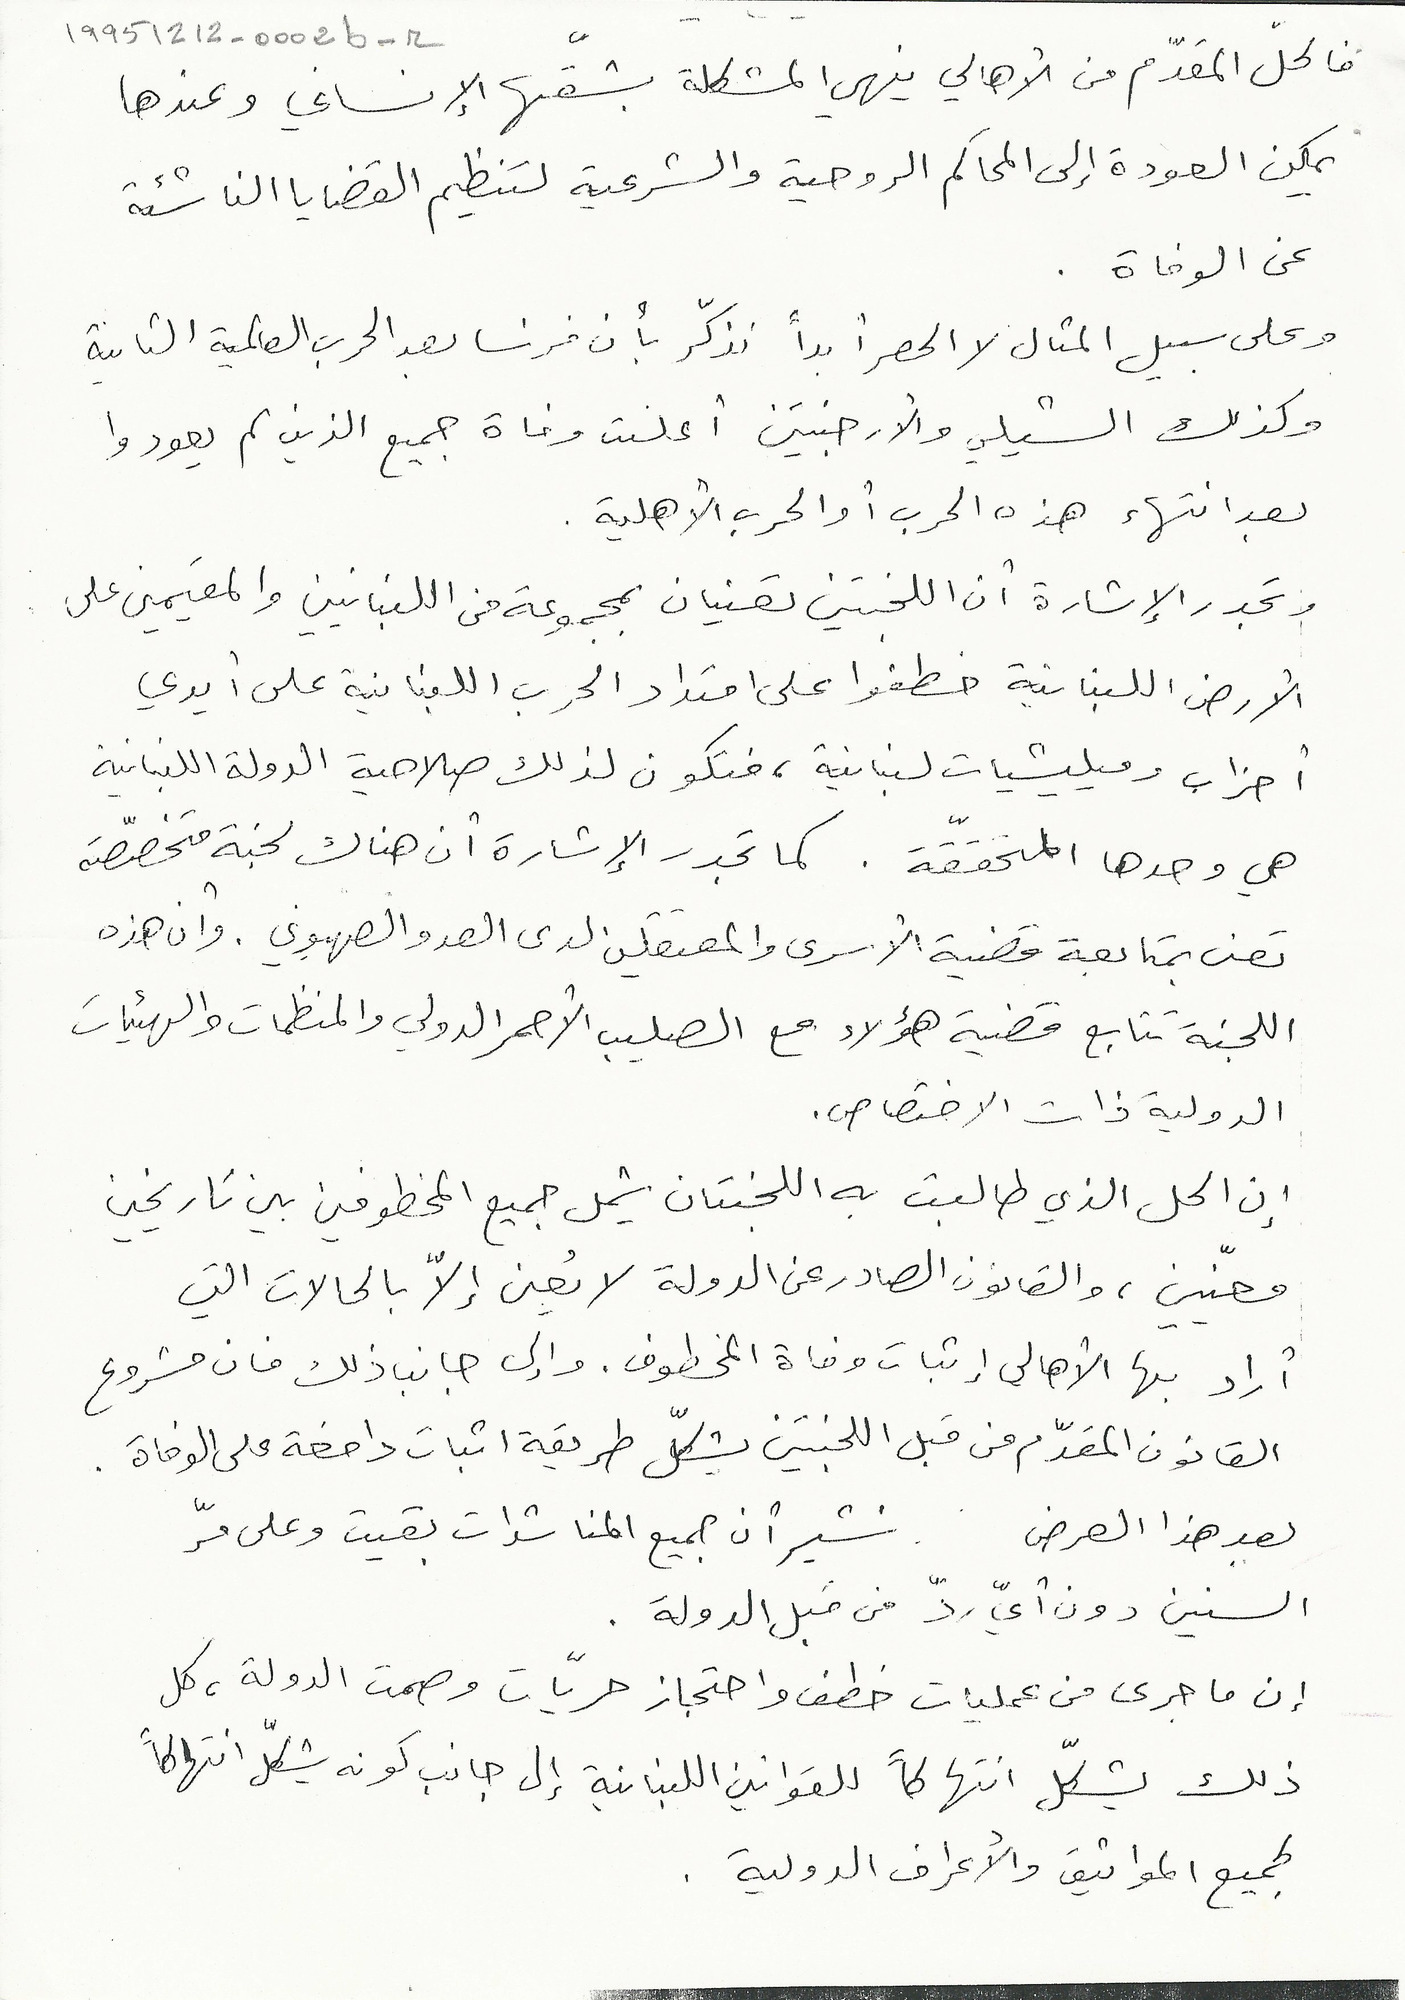 19951212-0002b-r
فالحلّ المقدّم من الأهالي ينهي المشكلة بشقّها الإنساني وعندها
يمكن العودة إلى المحاكم الروحية والشرعية لتنظيم القضايا الناشئة
عن الوفاة .
وعلى سبيل المثال لا الحصر أبداً نذكّر بأن فرنسا بعد الحرب العالمية الثانية
وكذلك الشيلي والأرجنتين أعلنت وفاة جميع الذين لم يعودوا
بعد انتهاء هذه الحرب أو الحرب الأهلية .
وتجدر الإشارة أن اللجنتين تعنيان بمجموعة من اللبنانيين والمقيمين على
الأرض اللبنانية خطفوا على امتداد الحرب اللبنانية على أيدي
أحزاب وميليشيات لبنانية ، فتكون لذلك صلاحية الدولة اللبنانية
هي وحدها المتحقّقة . كما تجدر الإشارة أن هناك لجنة متخصّصة
تعنى بمتابعة قضية الأسرى والمعتقلين لدى العدو الصهيوني . وأن هذه
اللجنة تتابع قضية هؤلاء مع الصليب الأحمر الدولي والمنظمات والهيئات
الدولية ذات الاختصاص .
إن الحل الذي طالبت به اللجنتان يشمل جميع المخطوفين بين تاريخين
معنّيين ، والقانون الصادر عن الدولة لا يُعنى إلاّ بالحالات التي
أراد بها الأهالي إثبات وفاة المخطوف . وإلى جانب ذلك فان مشروع
القانون المقدّم من قبل اللجنتين يشكلّ طريقة اثبات دامغة على الوفاة .
بعد هذا العرض نشير أن جميع المناشدات بقيت وعلى مرّ
السنين دون أيّ ردّ من قبل الدولة .
إن ما جرى من عمليات خطف واحتجاز حريّات وصمت الدولة ، كل
ذلك يشكلّ انتهاكاً للقوانين اللبنانية إلى جانب كونه يشكلّ انتهاكاً
لجميع المواثيق والأعراف الدولية .